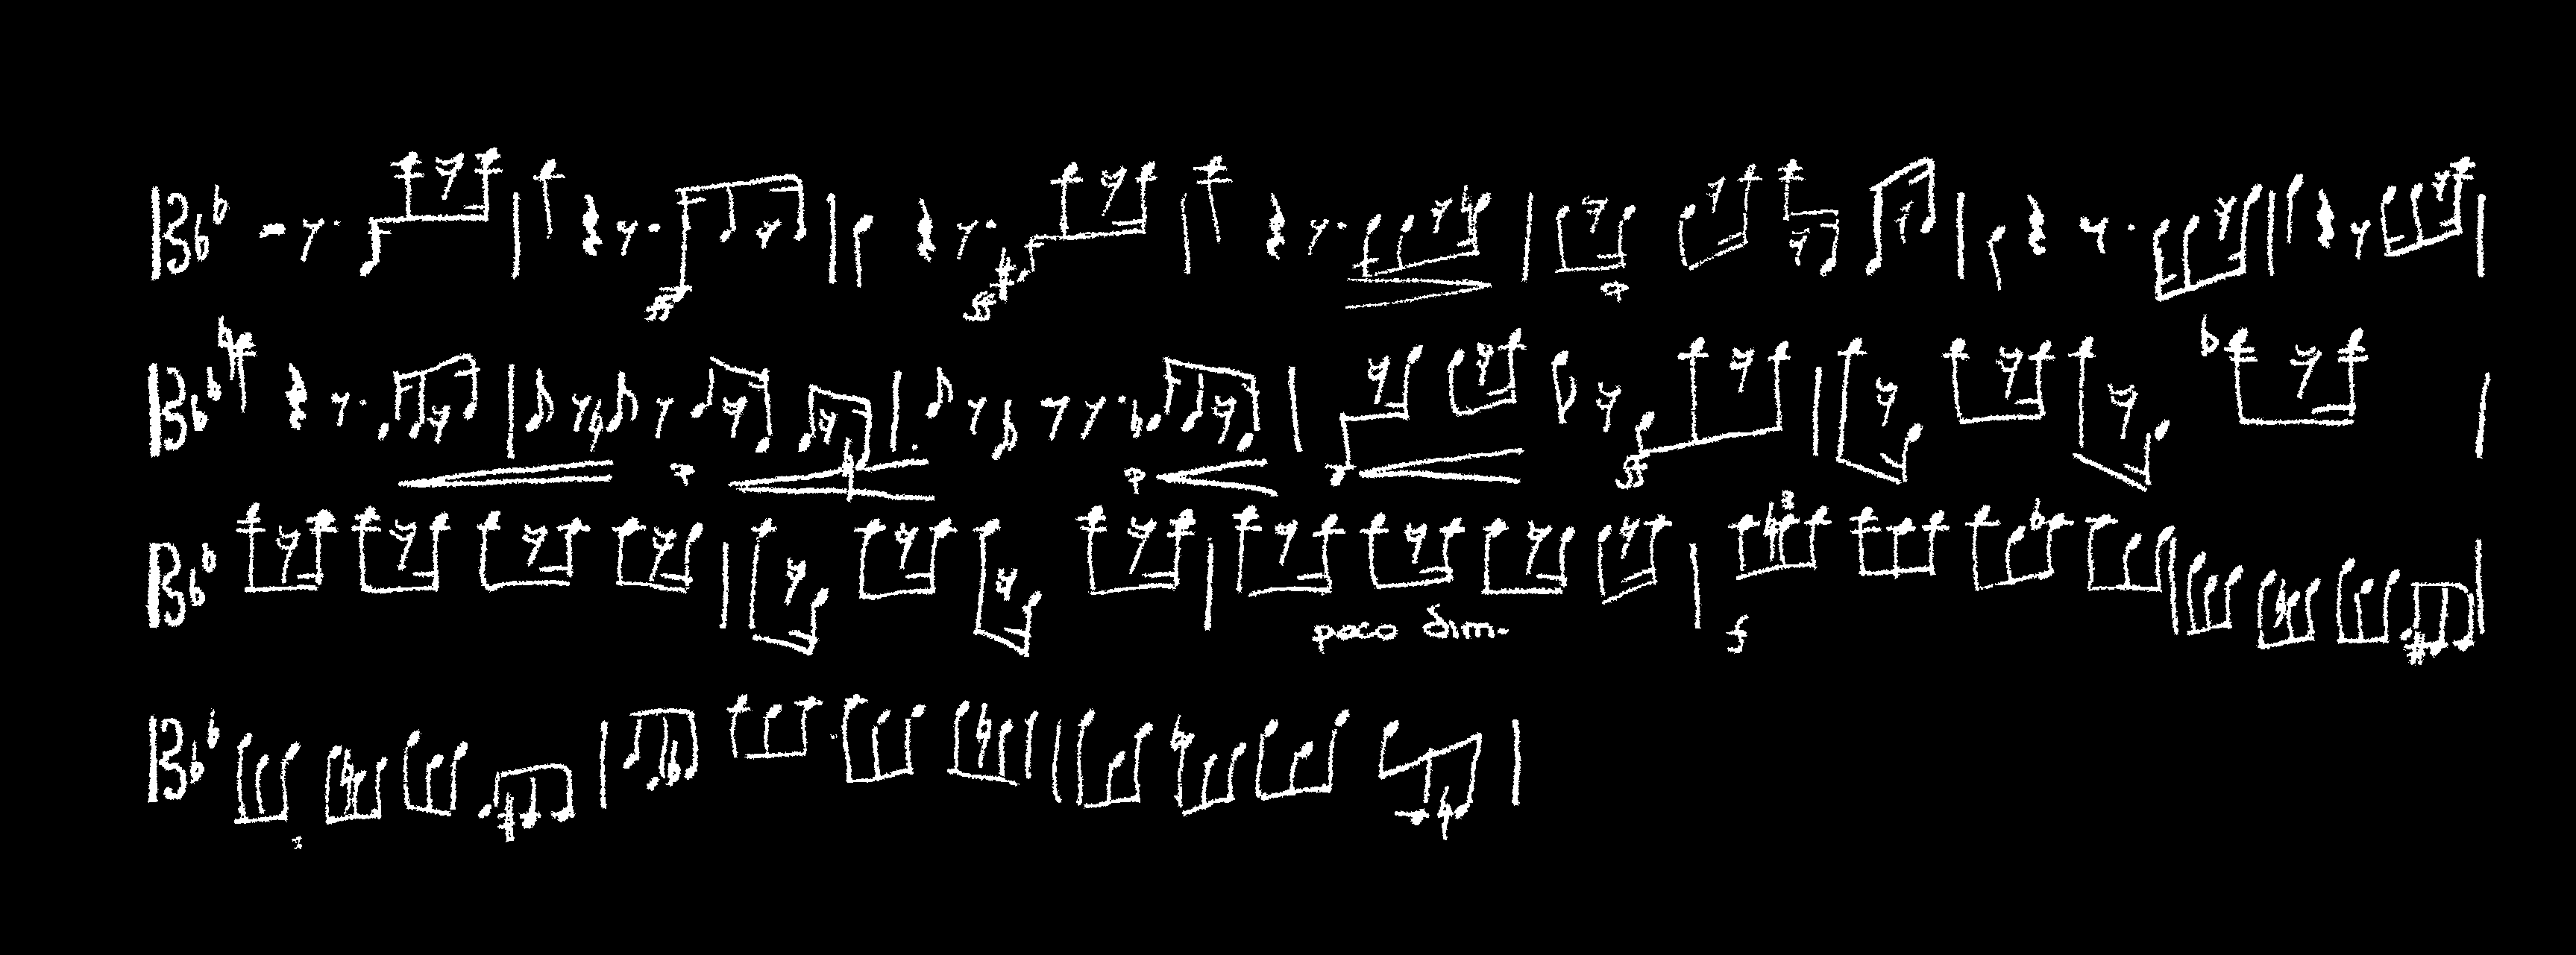 ff ff p
p p ff
poco dim. f